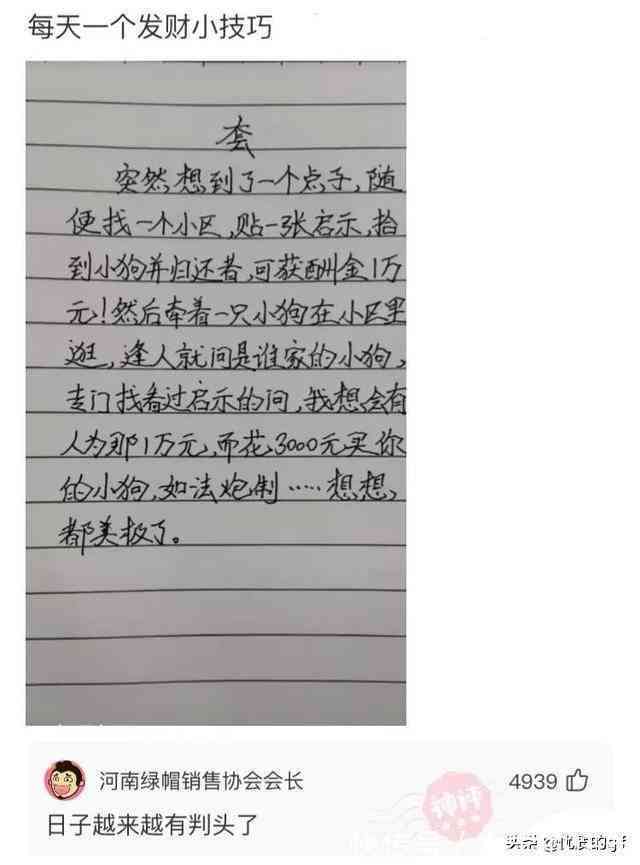 每天一个发财小技巧
套
突然想到了一个点子,随
便找一个小区,贴一张启示,拾
到小狗并归还者,可获酬金1万
元!然后牵着一只小狗在小区里
逛,逢人就问是谁家的小狗,
专门找看过启示的问,我想会有
人为那1万元,而花3000元买你
的小狗,如法炮制……想想,
都美极了。
河南绿帽销售协会会长
4939
神评
日子越来越有判头了